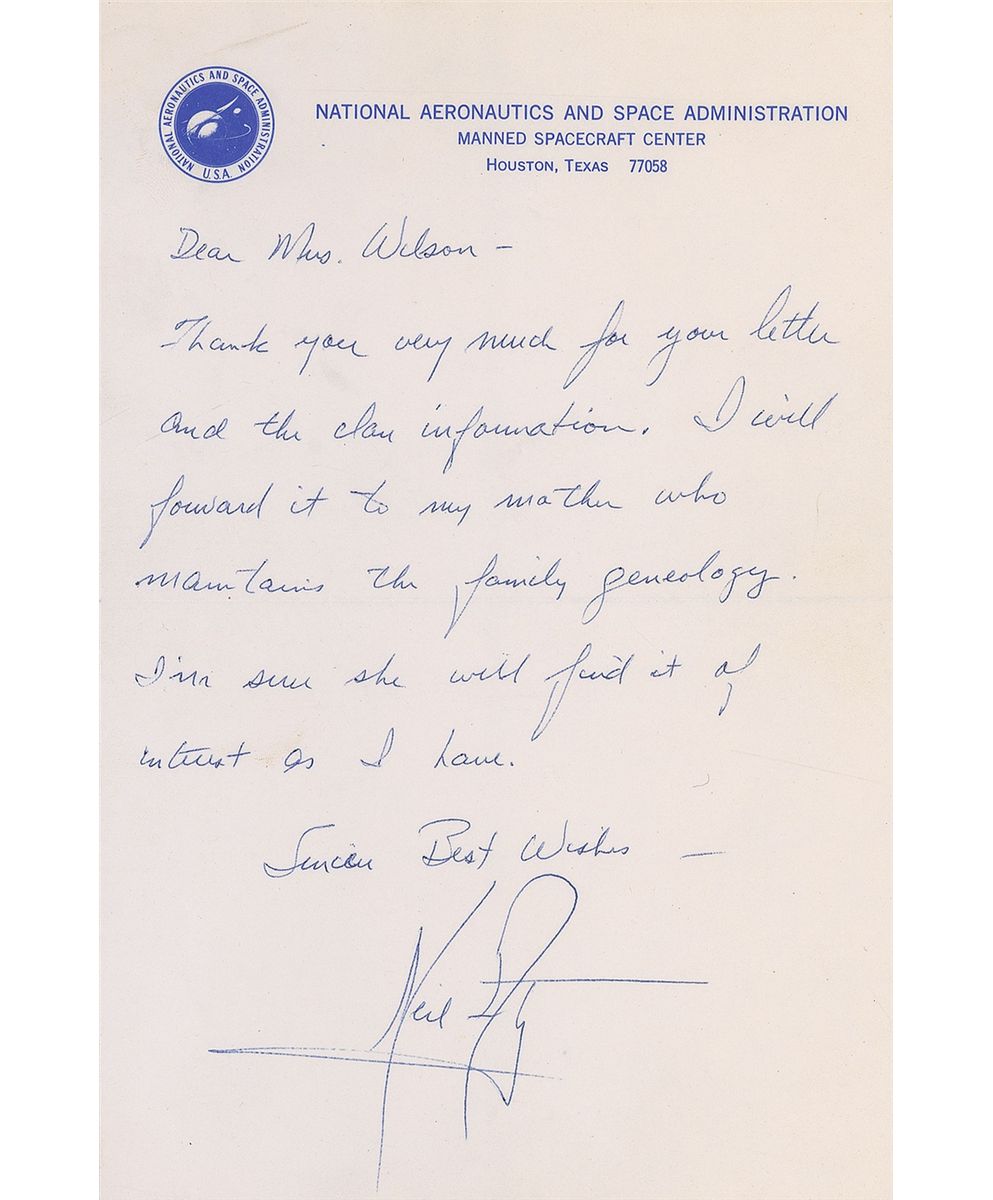 NATIONAL AERONAUTICS AND SPACE ADMINISTRATION
U.S.A.
NATIONAL AERONAUTICS AND SPACE ADMINISTRATION
MANNED SPACECRAFT CENTER
HOUSTON, TEXAS 77058
Dear Mrs. Wilson –
Thank you very much for your letter
and the clan information. I will
forward it to my mother who
maintains the family geneology.
I'm sure she will find it of
interest as I have.
Sincere Best Wishes —
Neil